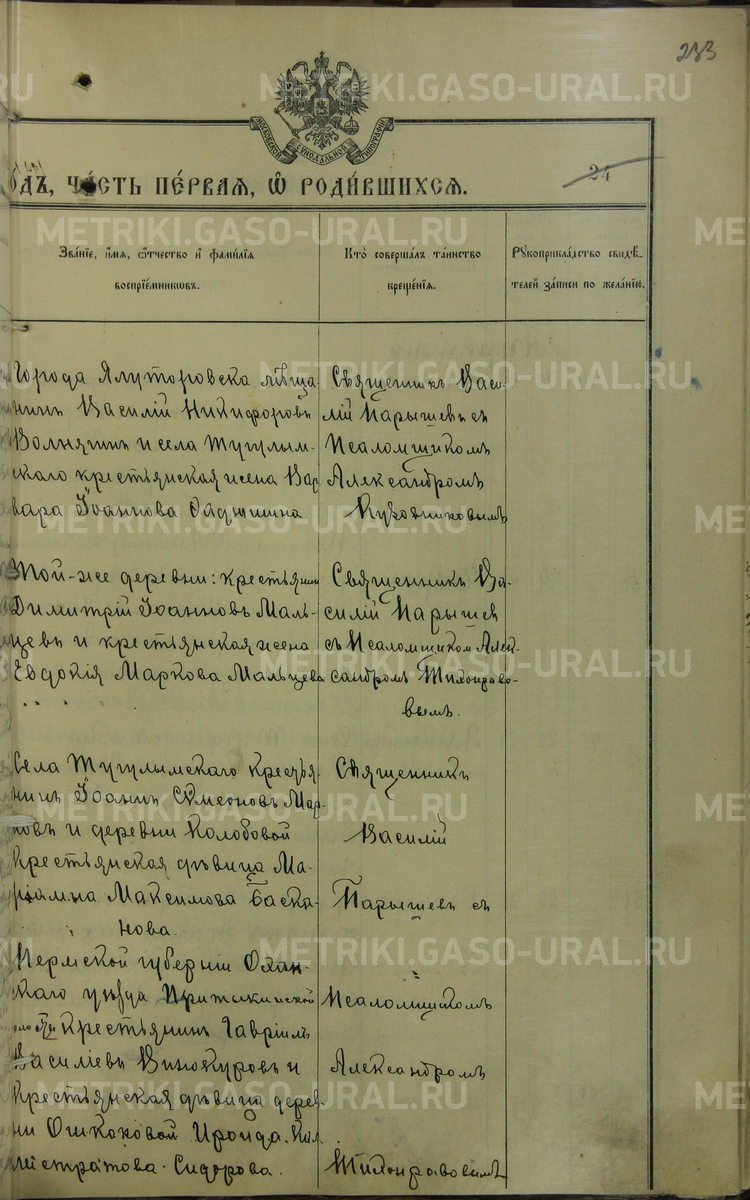 233
МОСКОВСКОЙ СѴНОДАЛЬНОЙ ТИПОГРАФІИ
24
ОДЪ, ЧА́СТЬ ПЕ́РВАЯ, Ѽ РОДИ́ВШИХСЯ.
Зва́нїе, и́мя, ѻ҆́тчество и҆ фами́лїя
воспрїе́мникѡвъ.
Кто̀ соверша́лъ та́инство
креще́нїя.
Рꙋкоприкла́дство свидѣ́-
телей за́писи по жела́нїю.
Города Ялуторовска мѣща-
нинъ Василій Никифоровъ
Волнянинъ и села Тугулым-
скаго крестьянская жена Вар
вара Іоаннова
Священникъ Васи-
лій Парышевъ съ
Псаломщикомъ
Александромъ
Той-же деревни: крестьянинъ
Димитрій Іоанновъ Маль-
цевъ и крестьянская жена
Евдокія Маркова Мальцева
Священникъ Ва-
силій Парышев
съ Псаломщиком Алек-
сандромъ Тихонраво-
вымъ.
Села Тугулымскаго крестья-
нинъ Іоаннъ Сѵмеоновъ Мар-
ковъ и деревни Колобовой
крестьянская дѣвица Ма-
ріамна Максимова Баска-
нова.
Священникъ
Василій
Парышевъ съ
Пермской губерніи Охан-
скаго уѣзда
крестьянинъ Гавріилъ
Василіевъ Винокуровъ и
крестьянская дѣвица дерев-
ни Ошкоковой Ироида Кал
листратова Сидорова.
Псаломщикомъ
Александромъ
Тихонравовымъ
METRIKI.GASO-URAL.RU